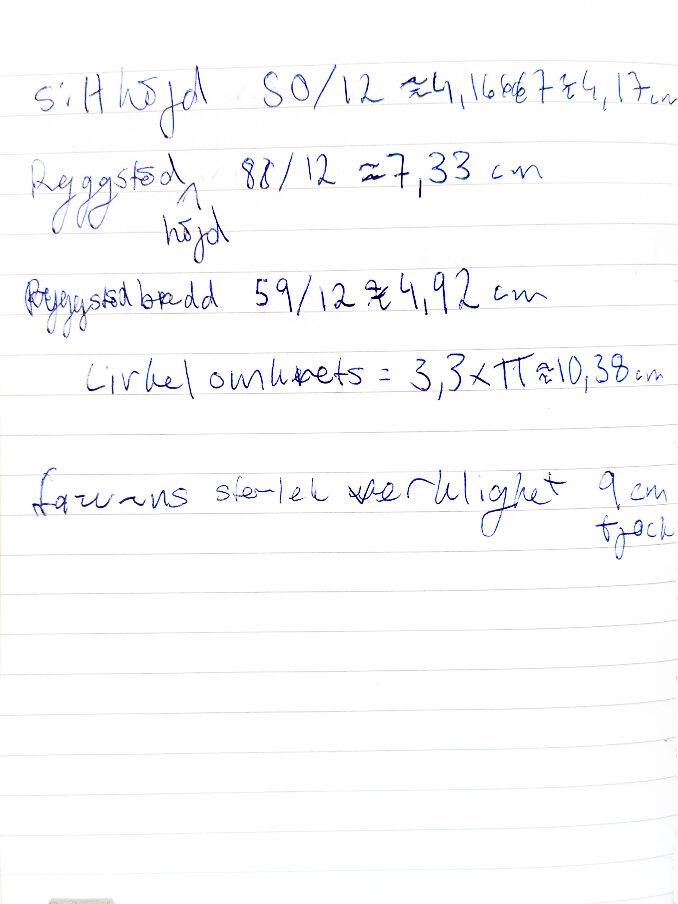 Sitthöjd 50/12 ≈4,16667≈4,17cm
Ryggstöd 88/12 ≈7,33 cm
höjd
Ryggstöd bredd 59/12≈4,92 cm
Cirkel omkrets = 3,3×π≈10,38cm
storlek verklighet 9 cm
tjock